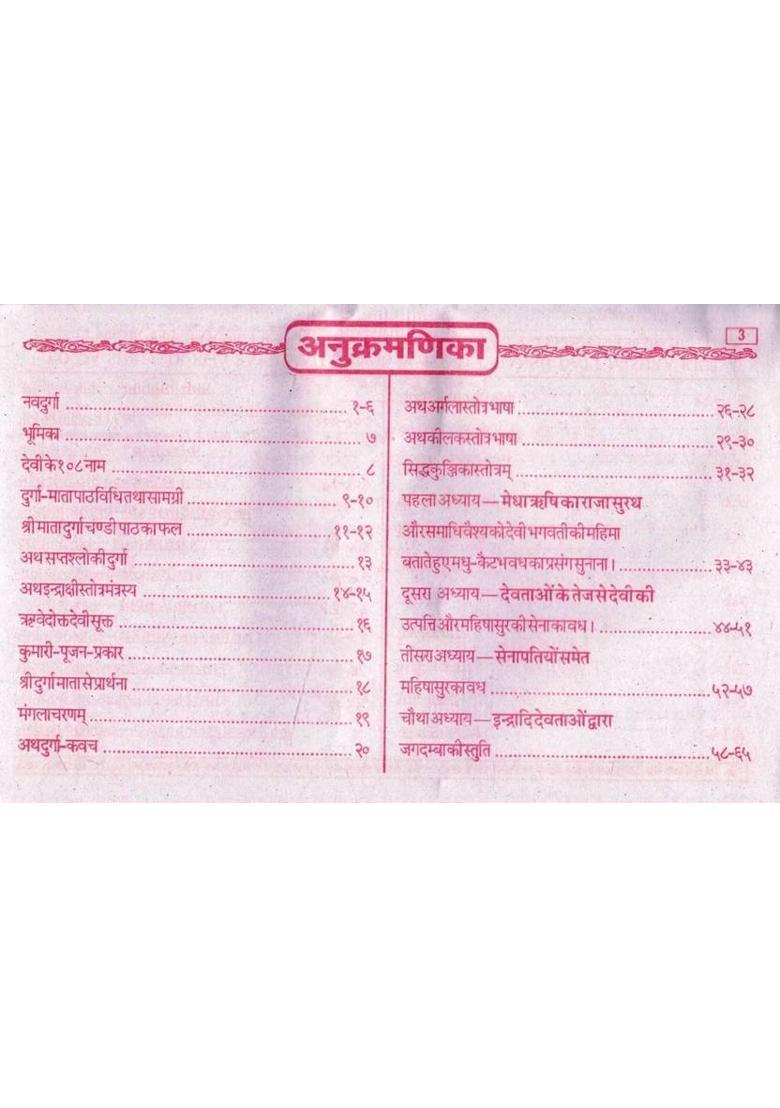 3
अनुक्रमणिका
नवदुर्गा ........ १-६
भूमिका ........ ७
देवी के १०८ नाम ........ ८
दुर्गा-माता पाठ विधि तथा सामग्री ........ ९-१०
श्री माता दुर्गा चण्डी पाठ का फल ........ ११-१२
अथ सप्तश्लोकी दुर्गा ........ १३
अथ इन्द्राक्षी स्तोत्र मंत्रस्य ........ १४-१५
ऋवेदोक्त देवी सूक्त ........ १६
कुमारी-पूजन-प्रकार ........ १७
श्री दुर्गा माता से प्रार्थना ........ १८
मंगलाचरणम् ........ १९
अथ दुर्गा-कवच ........ २०
अथ अर्गला स्तोत्र भाषा ........ २६-२८
अथ कीलक स्तोत्र भाषा ........ २९-३०
सिद्धकुञ्जिकास्तोत्रम् ........ ३१-३२
पहला अध्याय — मेधा ऋषि का राजा सुरथ
और समाधि वैश्य को देवी भगवती की महिमा
बताते हुए मधु-कैटभ वध का प्रसंग सुनाना। ........ ३३-४३
दूसरा अध्याय — देवताओं के तेज से देवी की
उत्पत्ति और महिषासुर की सेना का वध। ........ ४४-५१
तीसरा अध्याय — सेनापतियों समेत
महिषासुर का वध ........ ५२-५७
चौथा अध्याय — इन्द्रादि देवताओं द्वारा
जगदम्बा की स्तुति ........ ५८-६५